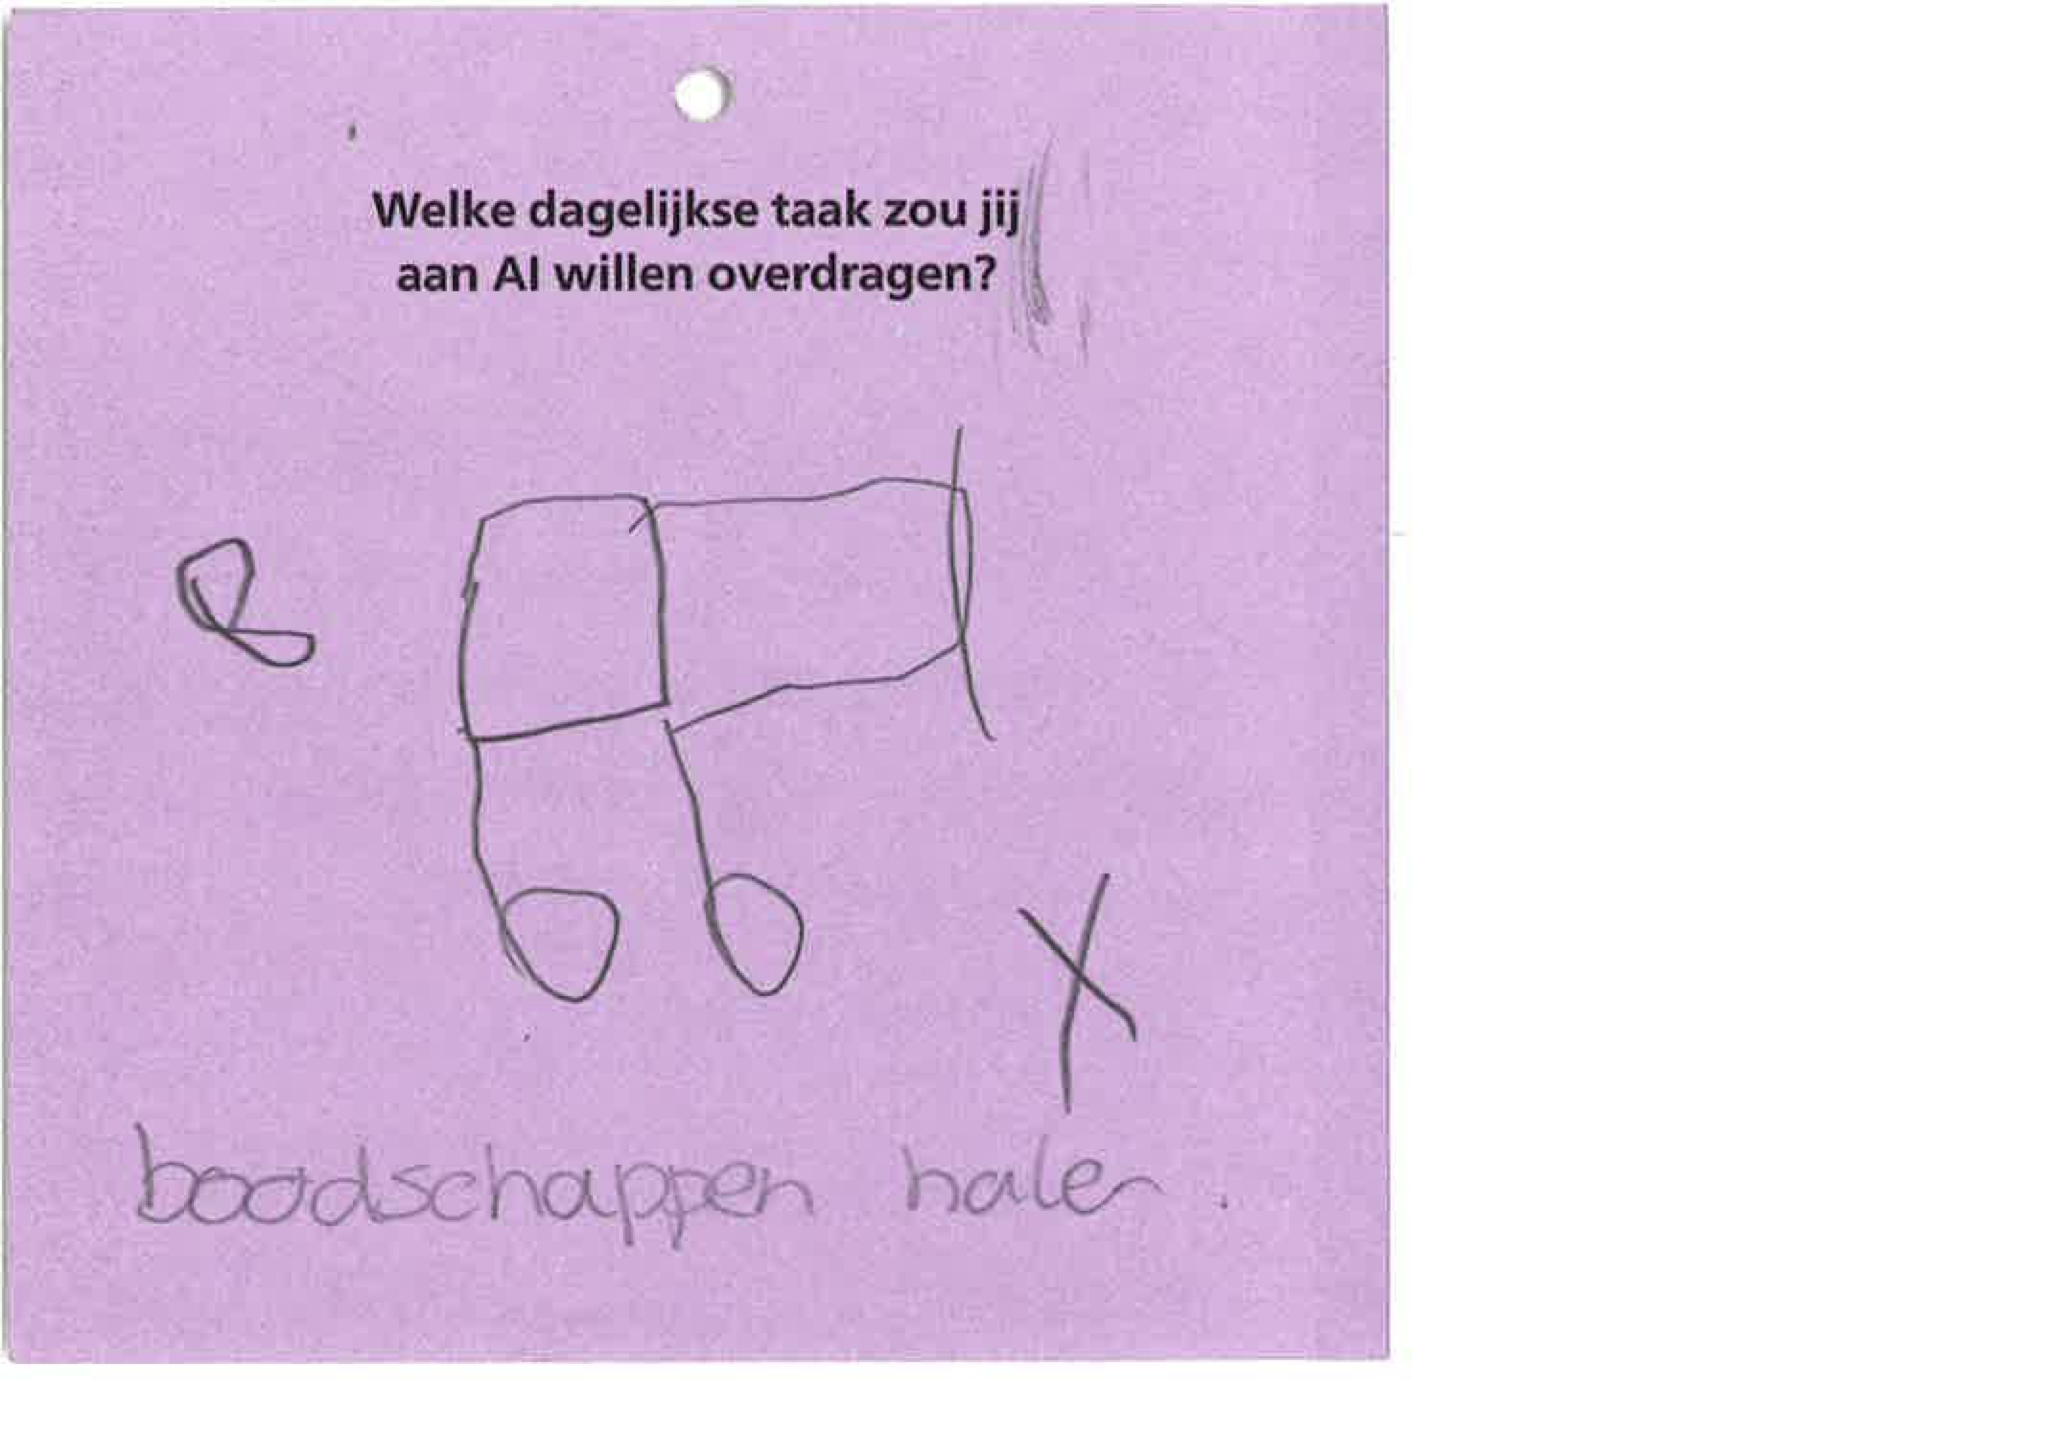 Welke dagelijkse taak zou jij
aan AI willen overdragen?
boodschappen halen